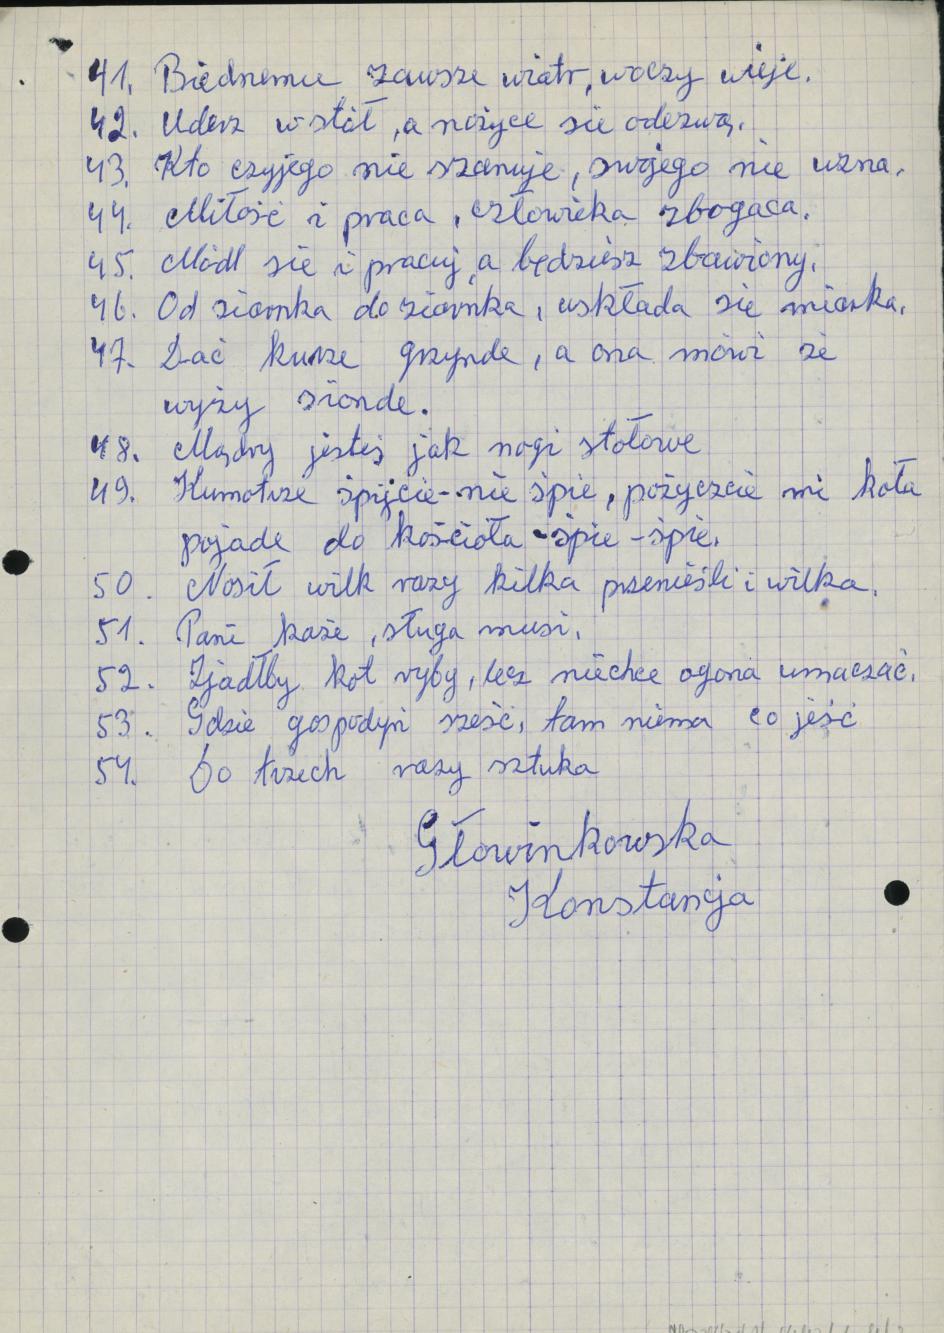 41. Biednemu zawsze wiatr, w oczy wieje.
42. Uderz w stół, a nożyce sie odezwą.
43. Kto czyjego nie szanuje, swojego nie uzna.
44. Miłość i praca, człowieka zbogaca.
45. Módl sie i pracuj, a będziesz zbawiony.
46. Od ziarnka do ziarnka, uskłada sie miarka.
47. Dać kurze grzynde, a ona mówi że
wyży sionde.
48. Mądry jesteś jak nogi stołowe
49. Kumotrze śpijcie - nie śpie, pożyczcie mi koła
pojade do kościoła - śpie - śpie.
50. Nosił wilk razy kilka przenieśli i wilka.
51. Pani każe, sługa musi.
52. Zjadłby kot ryby, lecz niechce ogona umaczać.
53. Gdzie gospodyń sześć, tam niema co jeść
54. Do trzech razy sztuka
Głowinkowska
Konstancja